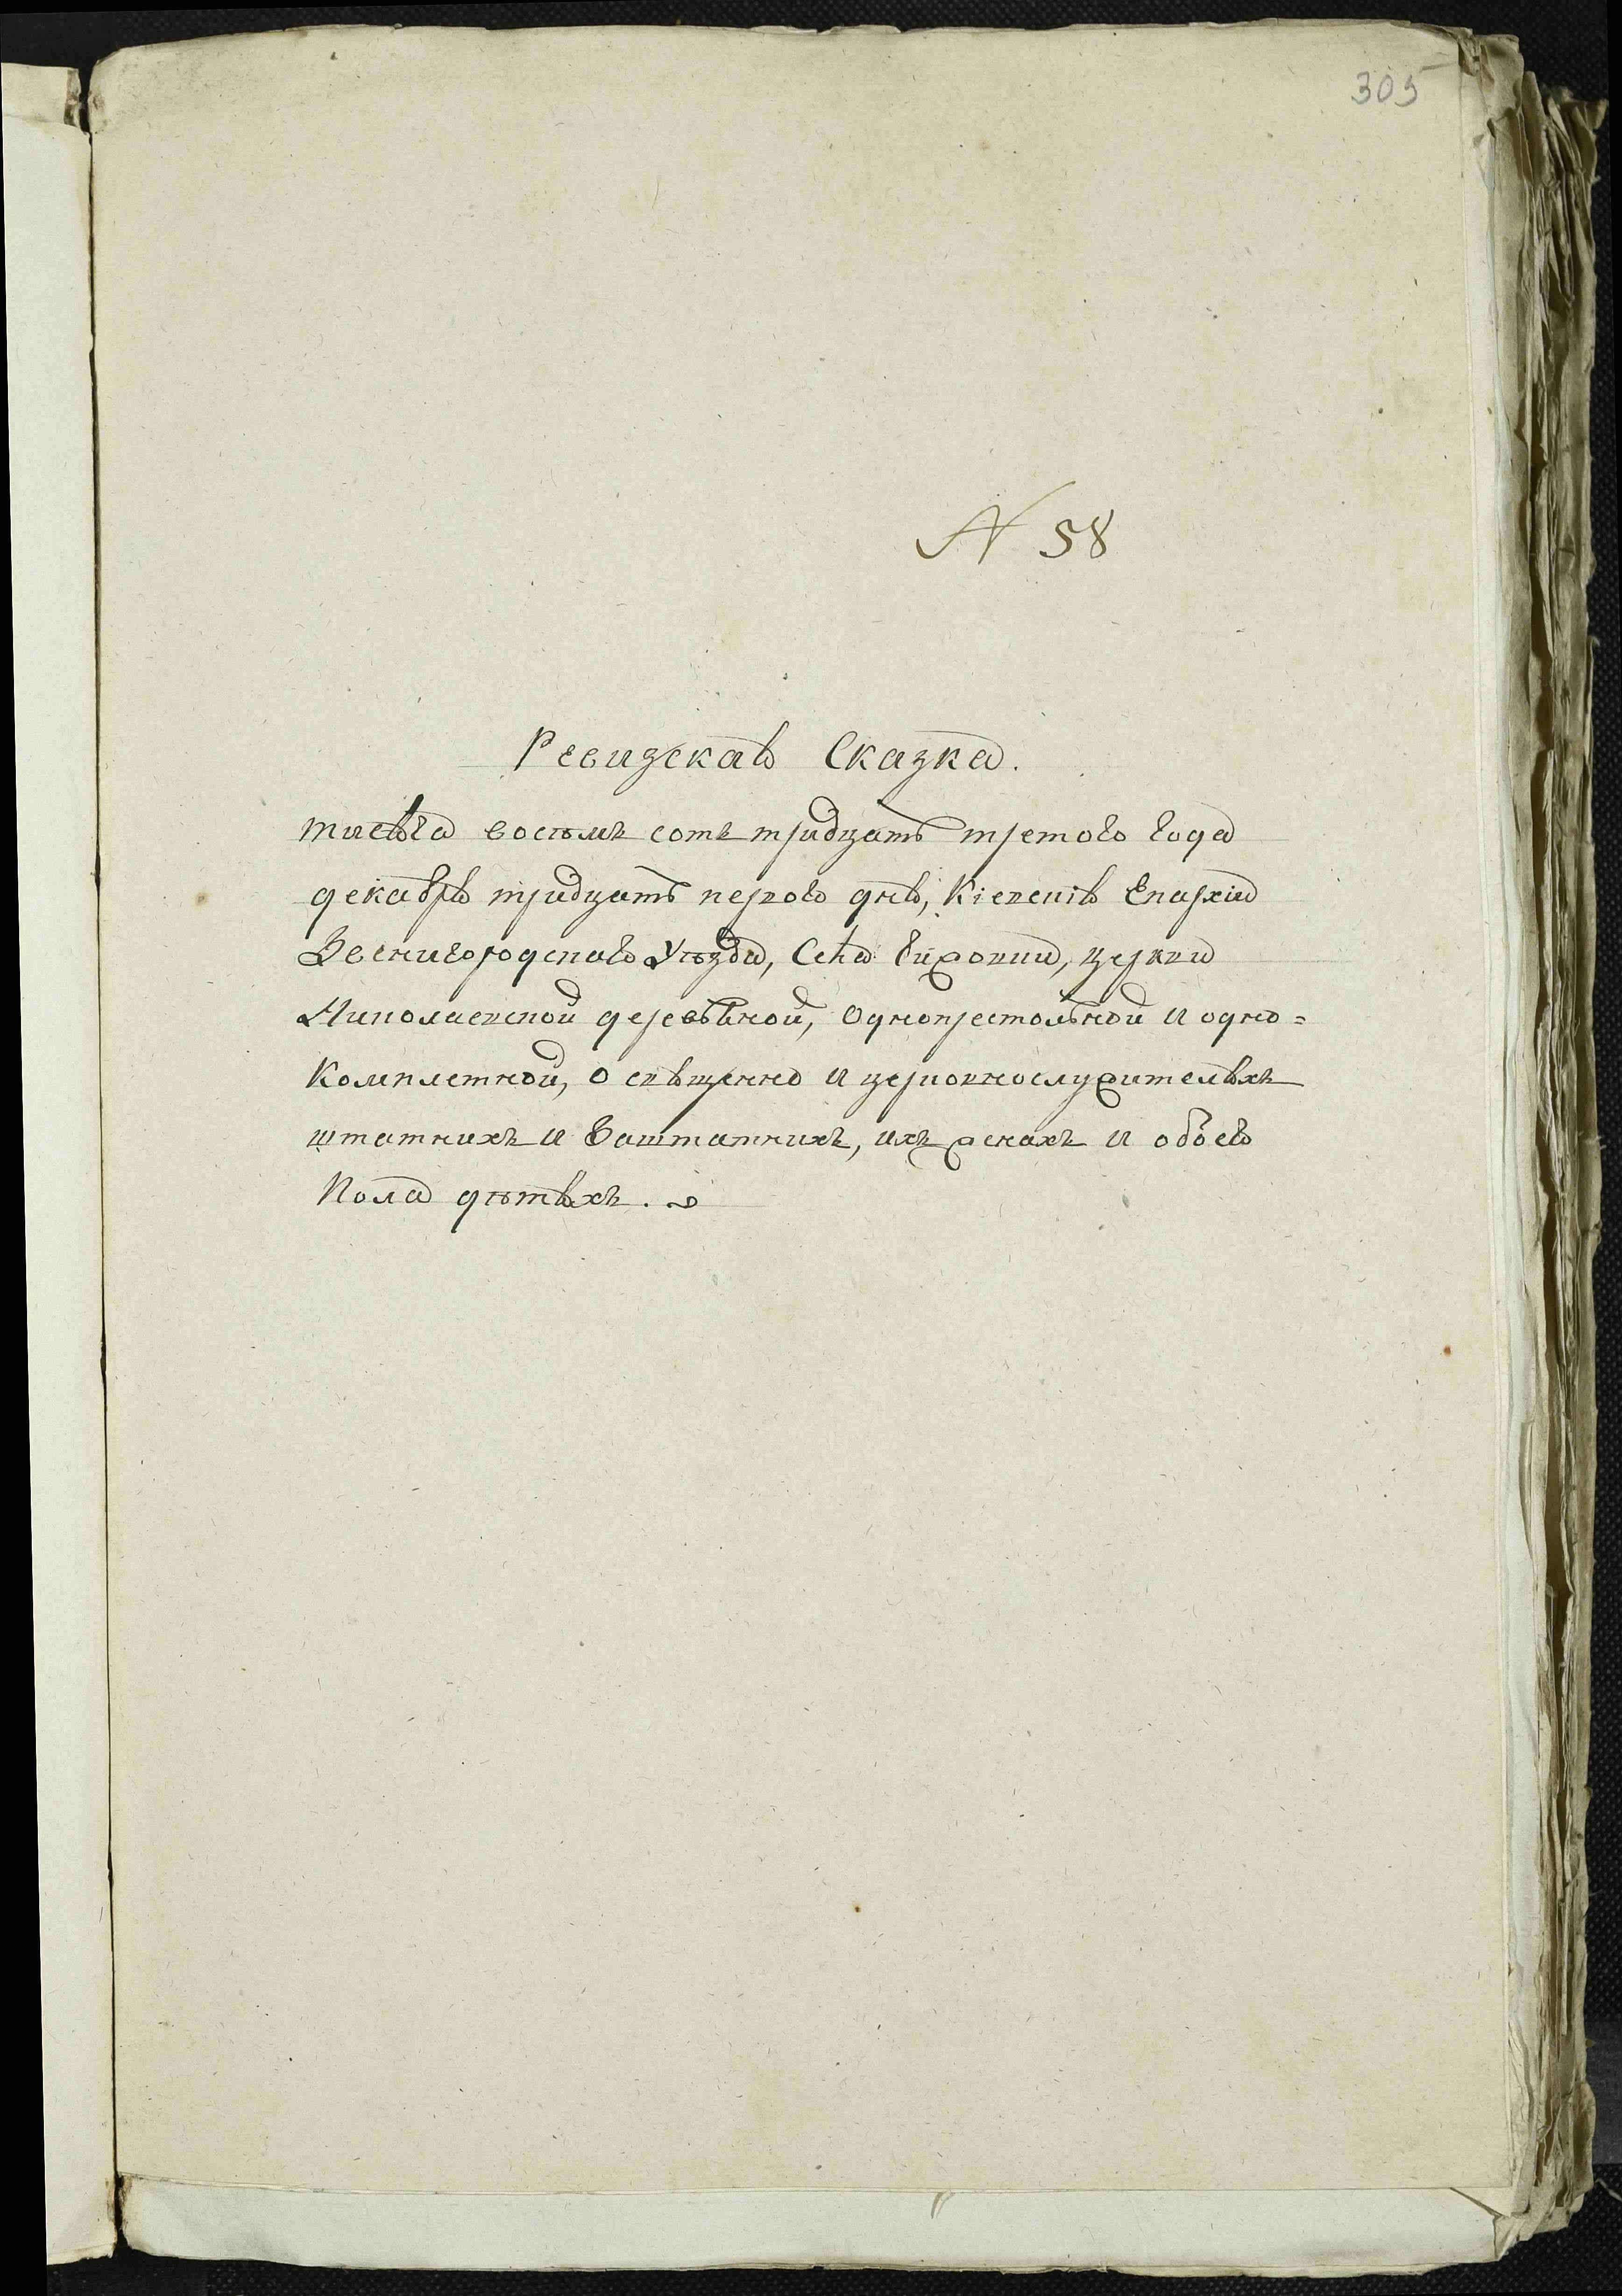 305
N 58
Ревизская Сказка.
тисяча восѣмъ сотъ тридцать третого года
декабря тридцать первого дня, Кіевскія Епархіи
Звенигородскаго Уѣзда, Села Гижовки, церкви
Николаевской деревяной, Однопрестольной и одно=
комплетной, о священно и церковнослужителяхъ
штатнихъ и Заштатнихъ, ихъ женахъ и обоего
Пола дѣтяхъ.